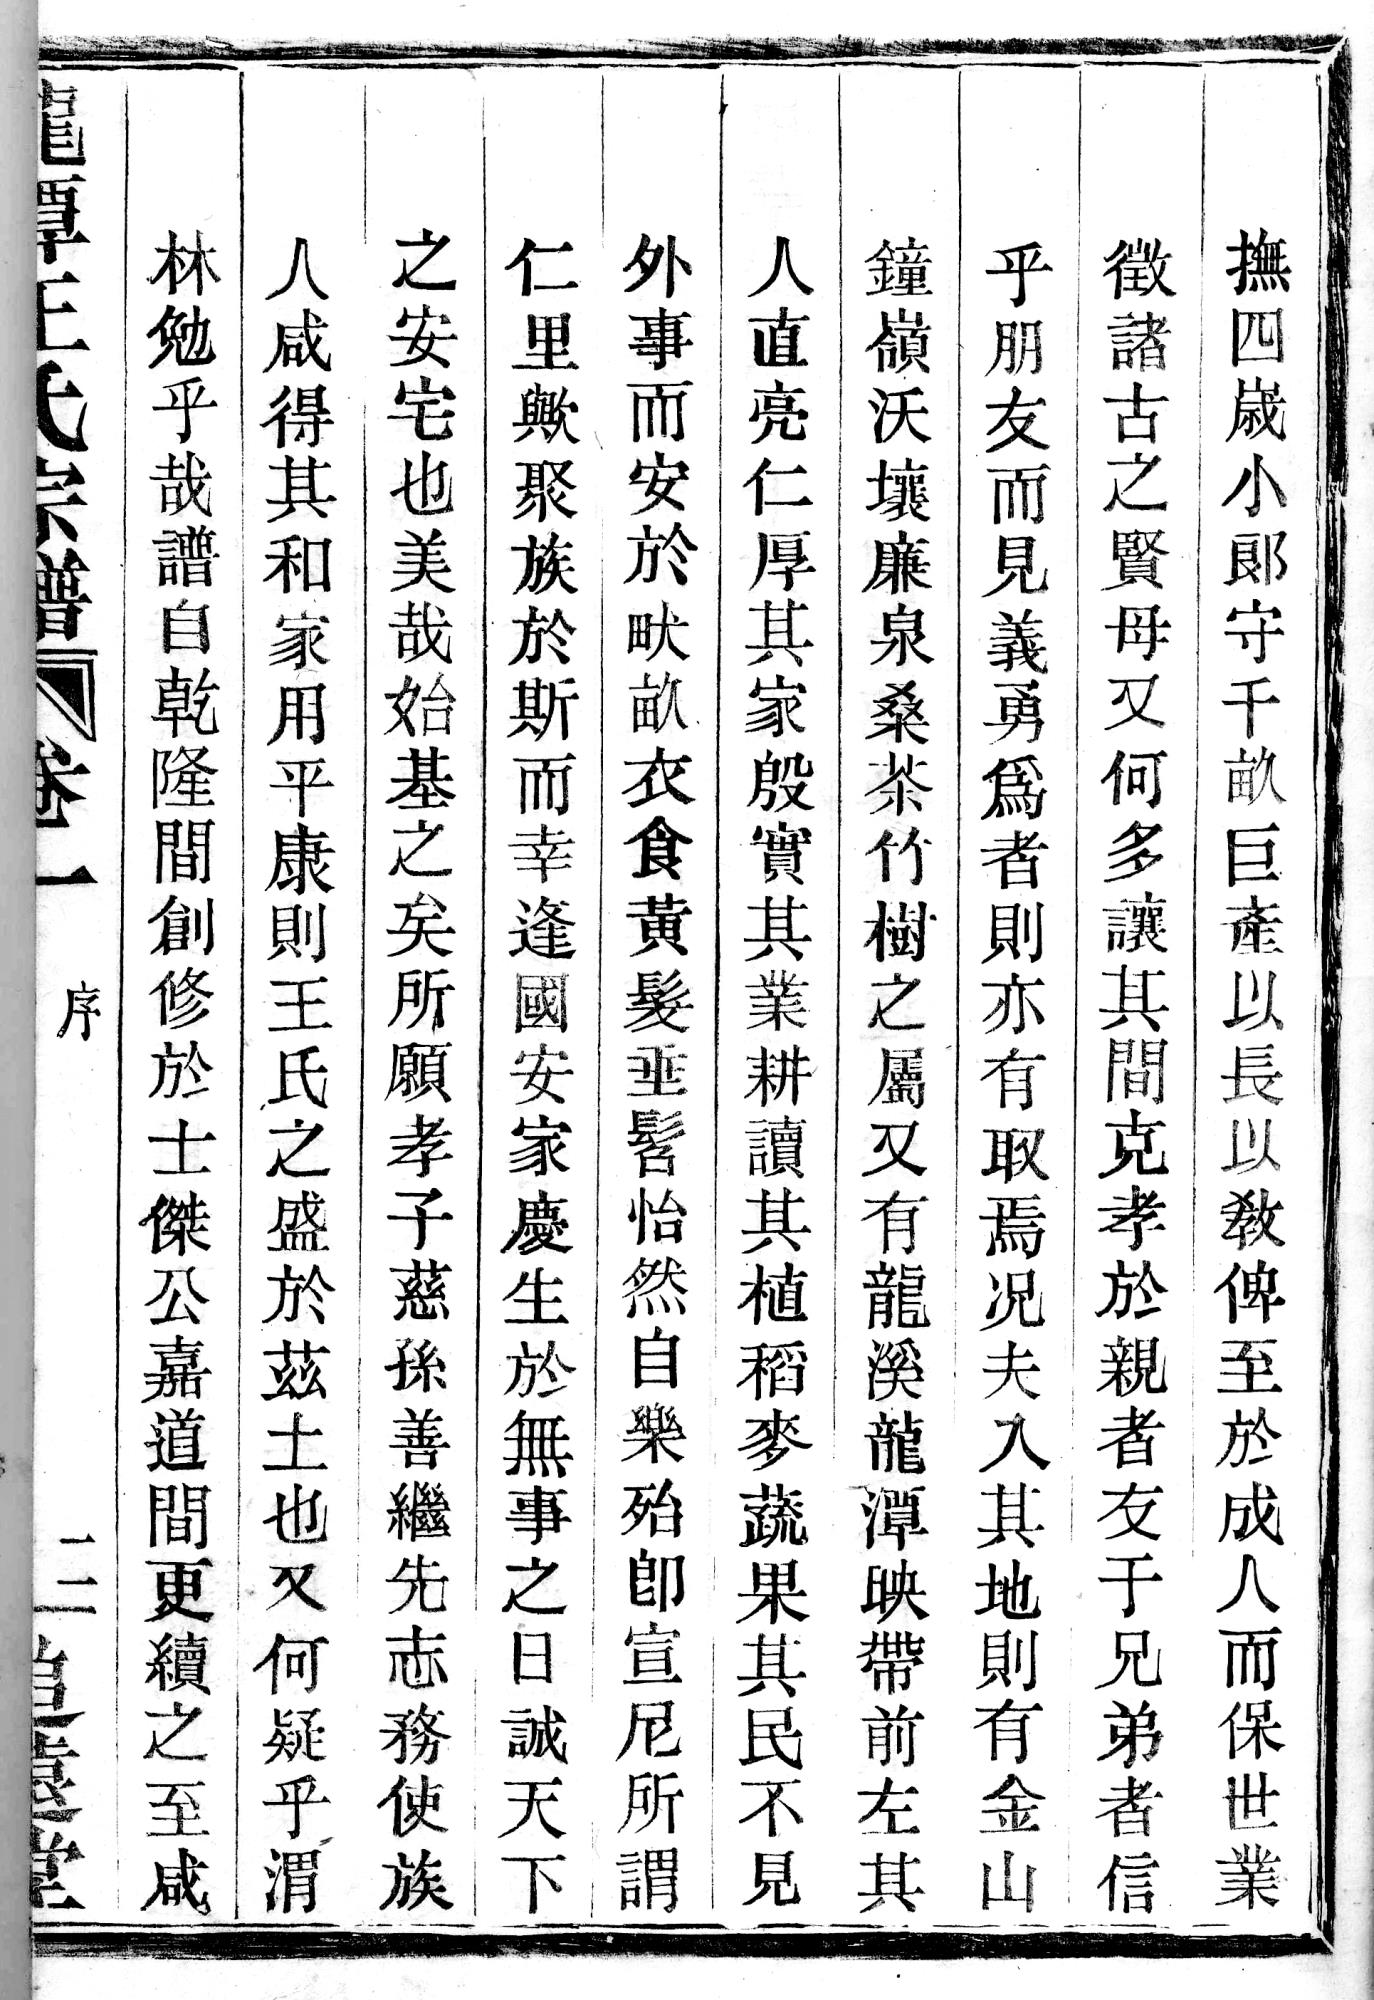 撫四歲小郞守千畝巨產以長以敎俾至於成人而保世業
徵諸古之賢母又何多讓其間克孝於親者友于兄弟者信
乎朋友而見義勇爲者則亦有取焉况夫入其地則有金山
鐘嶺沃壤廉泉桑茶竹樹之屬又有龍溪龍潭映帶前左其
人直亮仁厚其家殷實其業耕讀其植稻麥蔬果其民不見
外事而安於畎畝衣食黃髮垂髫怡然自樂殆卽宣尼所謂
仁里歟聚族於斯而幸逢國安家慶生於無事之日誠天下
之安宅也美哉始基之矣所願孝子慈孫善繼先志務使族
人咸得其和家用平康則王氏之盛於茲土也又何疑乎渭
林勉乎哉譜自乾隆間創修於士傑公嘉道間更續之至咸
龍潭王氏宗譜 卷一 序 二 追遠堂